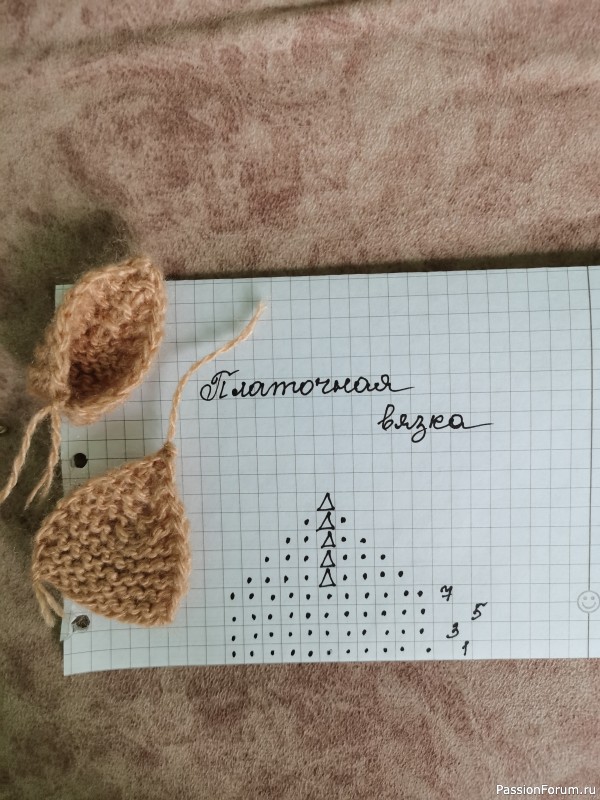 Платочная
вязка
7
5
3
1
PassionForum.ru